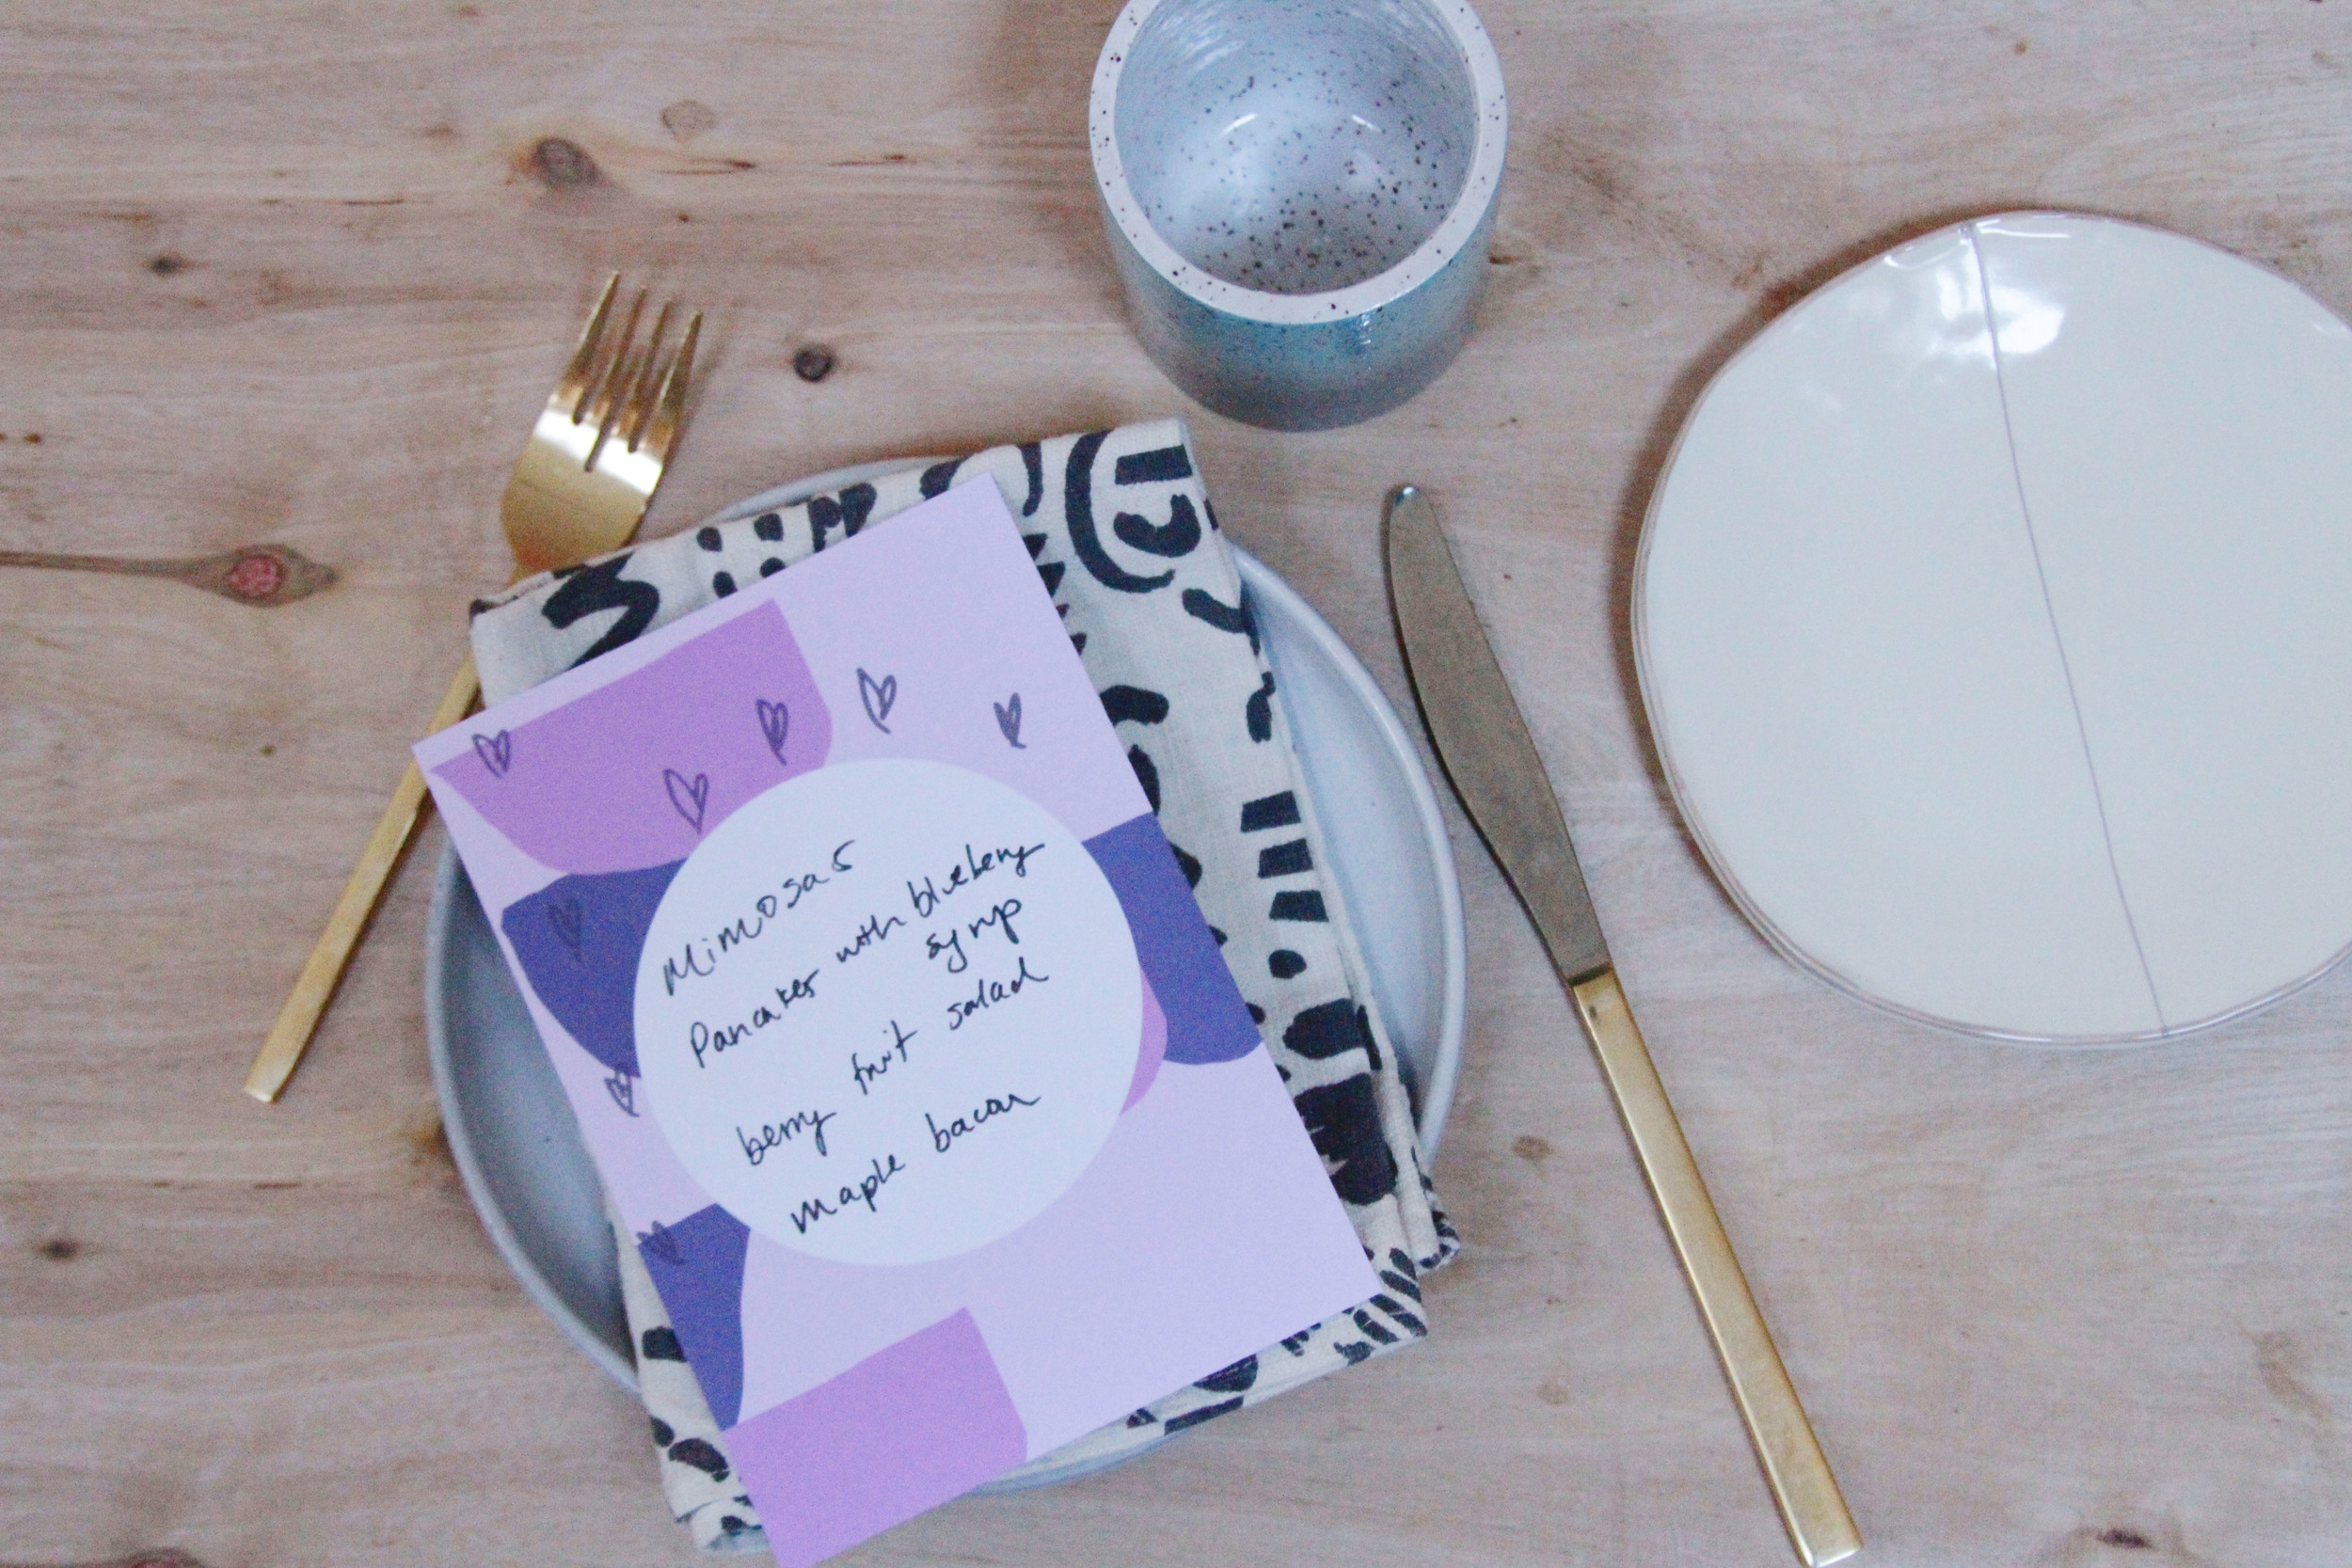 Mimosas
Pancakes with blueberry
syrup
berry fruit salad
Maple bacon